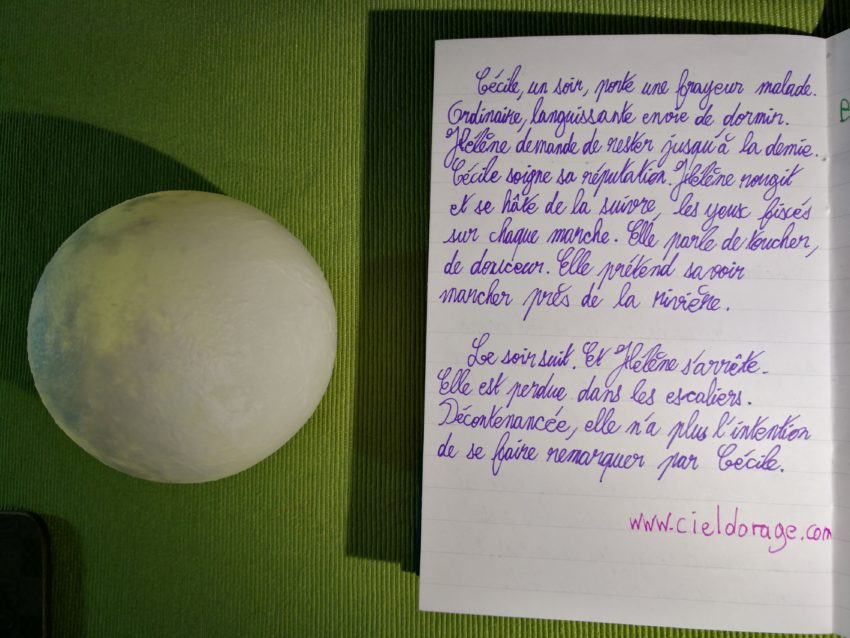 Cécile, un soir, porte une frayeur malade.
Ordinaire, languissante envie de dormir.
Hélène demande de rester jusqu'à la demie.
Cécile soigne sa réputation. Hélène rougit
et se hâte de la suivre, les yeux fixés
sur chaque marche. Elle parle de toucher,
de douceur. Elle prétend savoir
marcher près de la rivière.
Le soir suit. Et Hélène s'arrête.
Elle est perdue dans les escaliers.
Décontenancée, elle n'a plus l'intention
de se faire remarquer par Cécile.
www.cieldorage.com